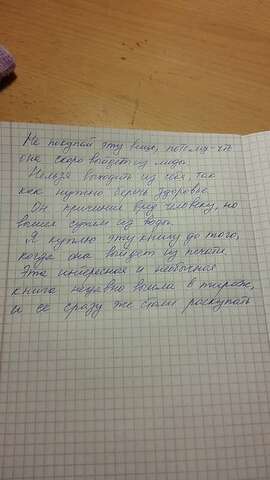 Не покупай эту вещь, потому-что
она скоро выйдет из моды.
Нельзя выходить из себя, так
как нужно беречь здоровье.
Он причинил вред человеку, но
вышел сухим из воды.
Я куплю эту книгу до того,
когда она выйдет из печати.
Эта интересная и необычная
книга недавно вышла в тираж,
и её сразу же стали раскупать